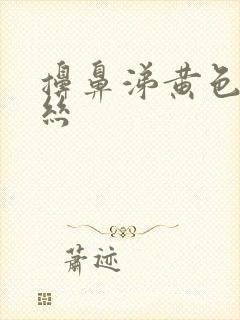 擤鼻涕黄色
丝
萧迹